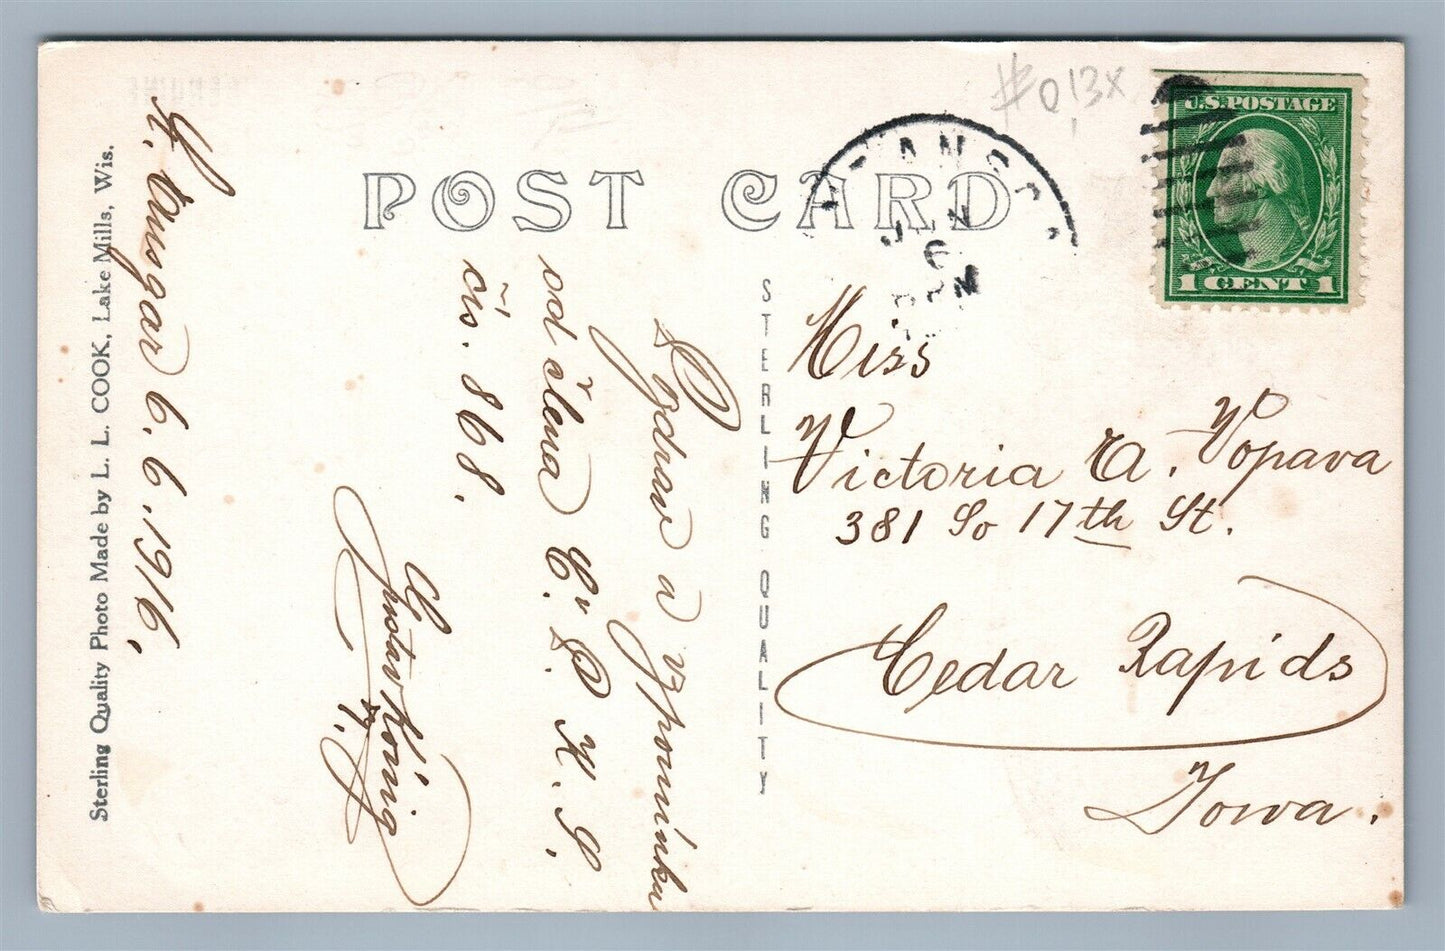 #013x
U.S. POSTAGE
1 CENT 1
POST CARD
JUN
6
PM
Sterling Quality Photo Made by L. L. COOK, Lake Mills, Wis.
St. Ansgar 6. 6. 1916.
Pozdrav a vzpomínka
od člena Č. P. K. S.
čís. 868.
Gustav König
STERLING QUALITY
Miss
Victoria A. Vopava
381 So 17th St.
Cedar Rapids
Iowa.